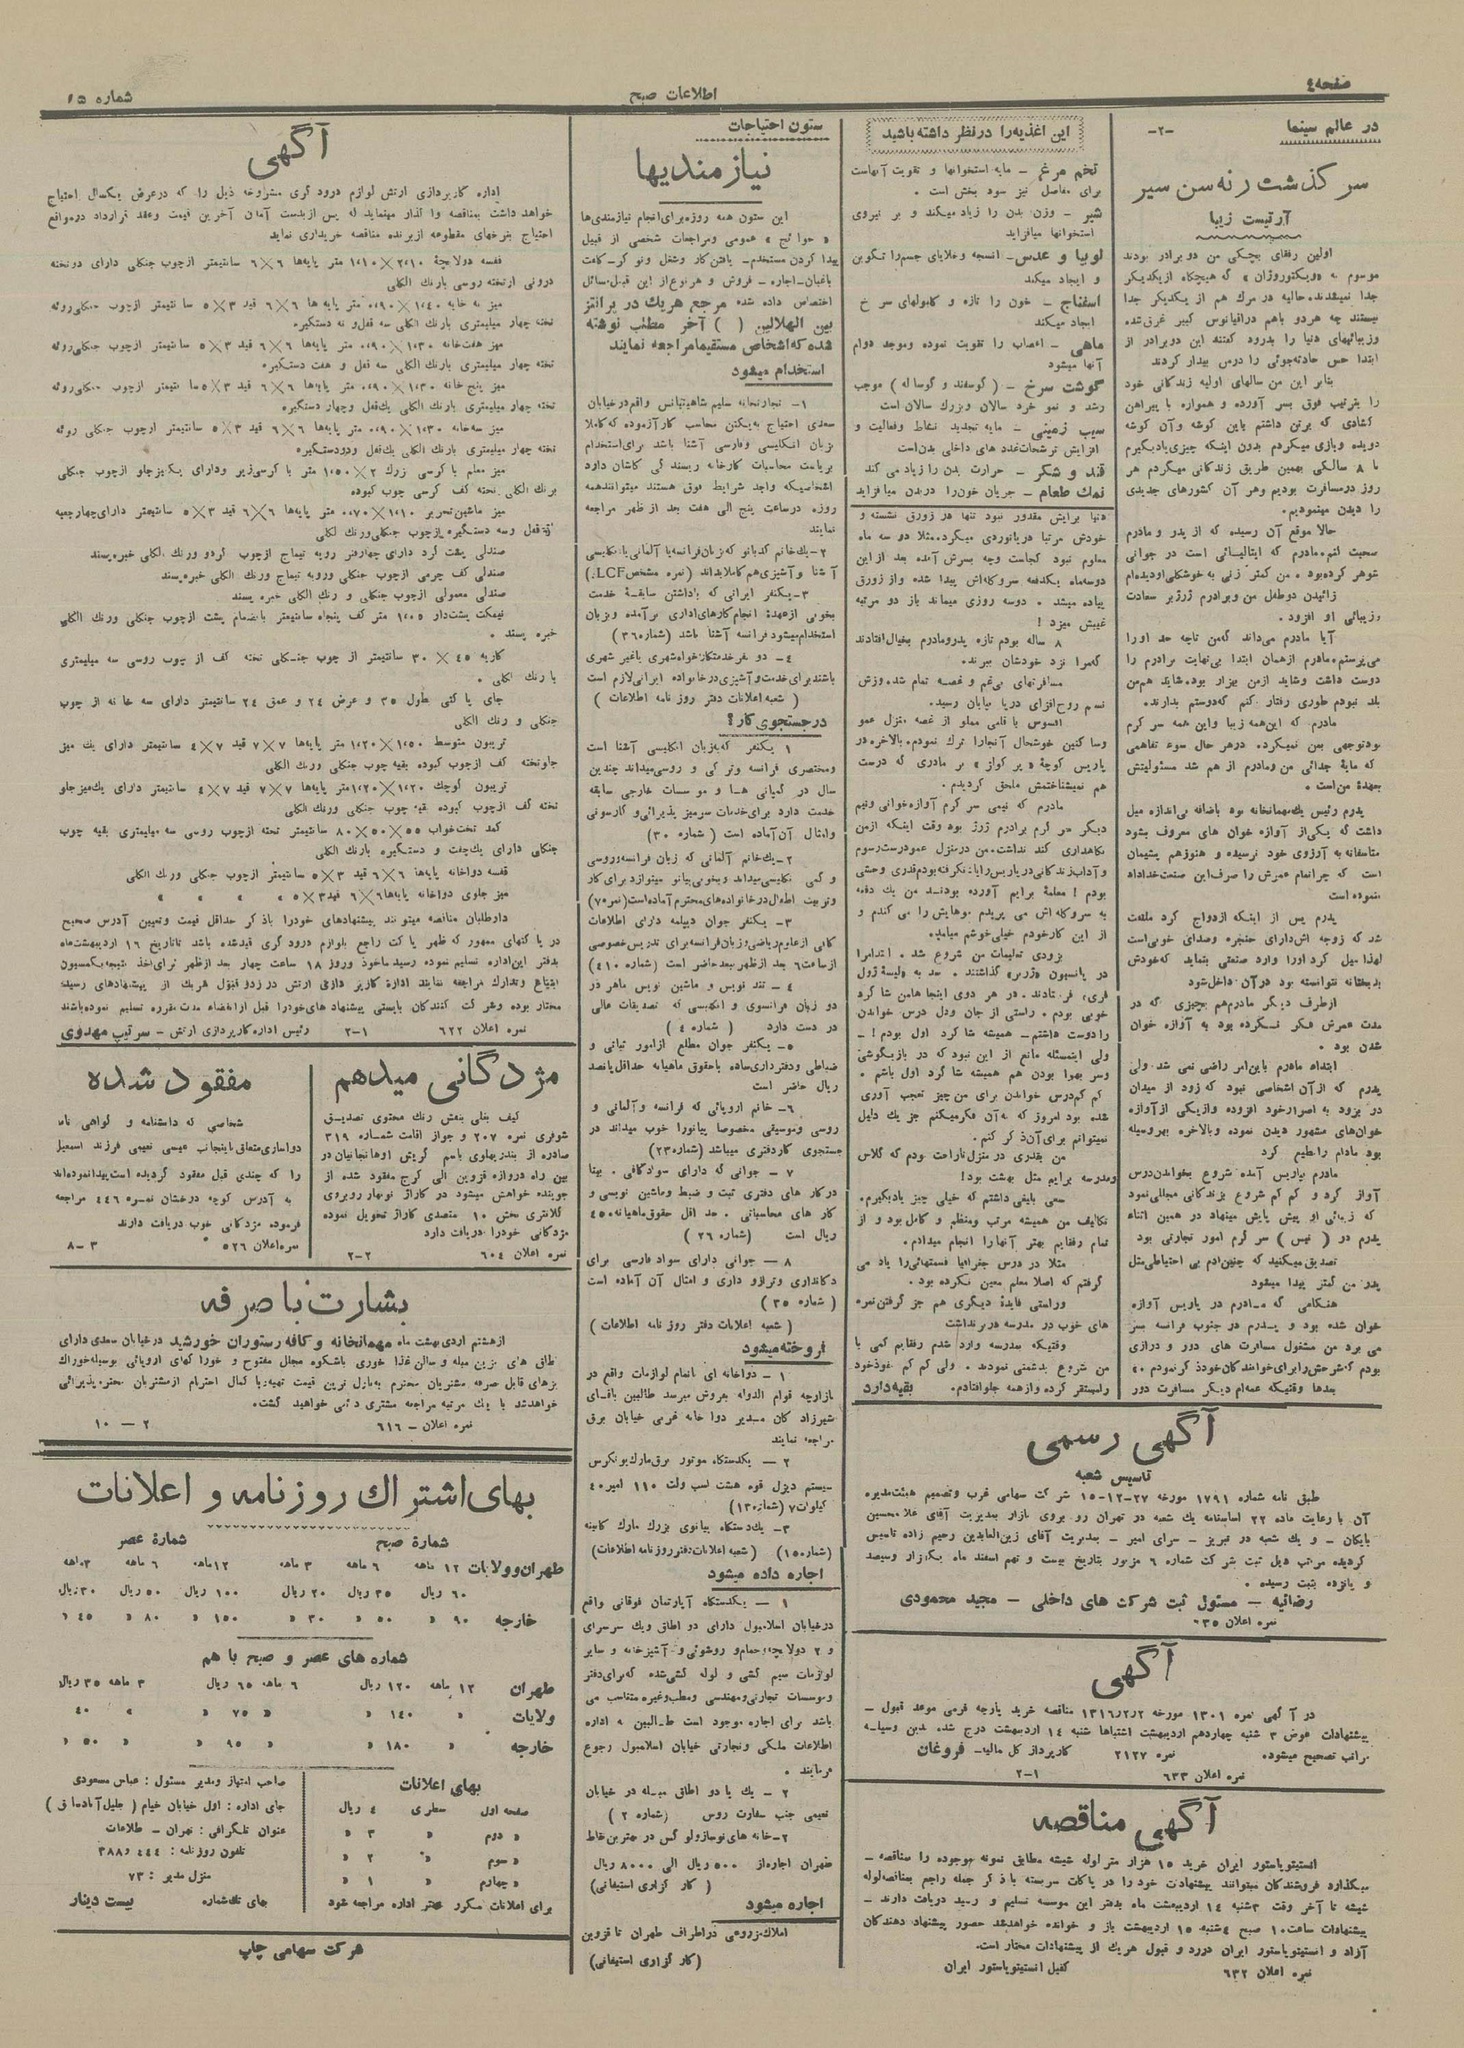 صفحه ٤
اطلاعات صبح
شماره ٦٥
در عالم سینما
-٢-
سر گذشت رنه سن سیر
آرتیست زیبا
اولین رفقای بچکی من دوبرادر بودند
موسوم به «ویکتوروژان» که هیچگاه ازیکدیگر
جدا نمیشدند. حالیه در مرك هم از یکدیگر جدا
نیستند چه هردو باهم دراقیانوس کبیر غرق شد.
وزیبائیهای دنیا را بدرود گفتند این دوبرادر از
ابتدا حس حادثه‌جوئی را درس بیدار کردند
بنابر این من سالهای اولیه زندگانی خود
را بترتیب فوق بسر آورده و همواره با پیراهن
گشادی که برتن داشتم باین گوشه وآن گوشه
دویده وبازی میکردم بدون اینکه چیزی یادبگیرم
تا ٨ سالگی بهمین طریق زندگانی میکردم هر
روز درمسافرت بودیم وهر آن کشورهای جدیدی
را دیدن مینمودیم.
حالا موقع آن رسیده که از پدر و مادرم
صحبت کنم. مادرم که ایتالیائی است در جوانی
شوهر کرده بود. من کمتر زنی به خوشگلی اودیده‌ام
زائیدن دوطفل من وبرادرم ژرژبر سعادت
وزیبائی او افزود.
آیا مادرم می‌داند که‌من تاچه حد اورا
می‌پرستم. مادرم ازهمان ابتدا بی‌نهایت برادرم را
دوست داشت وشاید ازمن بهزار بود. شاید هم‌من
بلد نبودم طوری رفتار کنم که‌دوستم بدارند.
مادرم که این‌همه زیبا واین همه سر گرم
بودتوجهی بمن نمیکرد. درهر حال سوء تفاهمی
که مایه جدائی من ومادرم از هم شد مسئولیتش
بعهدهٔ من‌است.
پدرم رئیس یك‌مهمانخانه بود باضافه بی‌اندازه میل
داشت که یکی‌از آوازه خوان های معروف بشود
متاسفانه به آرزوی خود نرسیده و هنوزهم پشیمان
است که چراتمام عمرش را صرف‌این صنعت‌خداداد
ننموده است
پدرم پس از اینکه ازدواج کرد ملتفت
شد که زوجه اش‌دارای حنجره وصدای خوبی‌است
لهذا میل کرد اورا وارد صنعتی بنماید که‌خودش
بدبختانه نتوانسته بود درآن داخل‌شود
ازطرف دیگر مادرم‌هم بچیزی که در
مدت عمرش فکر نکرده بود به آوازه خوان
شدن بود.
ابتداء مادرم باین‌امر راضی نمی شد ولی
پدرم که ازآن اشخاصی نبود که زود از میدان
در برود به اصرارخود افزوده وازیکی ازآوازه
خوان‌های مشهور دیدن نموده وبالاخره بهروسیله
بود مادام راتعلیم کرد
مادرم بپاریس آمده شروع بخواندن‌درس
آواز کرد و کم کم شروع بزندگانی مجللی‌نمود
که زیبائی او پیش پایش مینهاد در همین اثناء
پدرم در (نیس) سر گرم امور تجارتی بود
تصدیق‌میکنید که چنین‌ادم بی احتیاطی‌مثل
پدر من کمتر پیدا میشود
هنگامی که مادرم در پاریس آوازه
خوان شده بود و پدرم در جنوب فرانسه بسر
می برد من مشغول مسافرت های دور و درازی
بودم که‌شرحش‌رابرای‌خوانندگان‌خودذکر نمودم.
بعدها وقتیکه عمه‌ام دیگر مسافرت دور
این اغذیه‌را درنظر داشته باشید
تخم مرغ – مایه استخوانها و تقویت آنهاست
برای مفاصل نیز سود بخش است.
شیر – وزن بدن را زیاد میکند و بر نیروی
استخوانها میافزاید
لوبیا و عدس – انسجه وخلایای جسم‌را تکوین
و ایجاد میکند
اسفناج – خون را تازه و گلبولهای سرخ
ایجاد میکند
ماهی – اعصاب را تقویت نموده وموجد دوام
آنها میشود
گوشت سرخ – (گوسفند و گوساله) موجب
رشد و نمو خرد سالان وبزرك سالان است
سیب زمینی – مایه تجدید نشاط وفعالیت و
افزایش ترشحات‌غدد های داخلی بدن‌است
قند و شکر – حرارت بدن را زیاد می کند
نمك طعام – جریان خون‌را دربدن میافزاید
دنیا برایش مقدور نبود تنها در زورق نشسته و
خودش مرتبا دریانوردی میکرد..مثلا دو سه ماه
معلوم نبود کجاست وچه بسرش آمده بعد ازاین
دوسه‌ماه یکدفعه سروکله‌اش پیدا شده وازذورق
پیاده میشد. دوسه روزی میماند باز دو مرتبه
غیبش میزد!
٨ ساله بودم تازه پدرومادرم بخیال‌افتادند
که‌مرا نزد خودشان ببرند.
مسافرتهای بی‌غم و غصه تمام شد. وزش
نسیم روح‌افزای دریا بپایان رسید.
افسوس با قلبی مملو از غصه منزل عمو
وسا کنین خوشحال آنجارا ترك نمودم. بالاخره در
پاریس کوچهٔ «پر گواز» بر مادری که درست
هم نمیشناختمش ملحق گردیدم.
مادرم که نیمی سر گرم آوازه‌خوانی ونیم
دیگر سر گرم برادرم ژرژ بود وقت اینکه ازمن
نگاهداری کند نداشت. من درمنزل عمودرست‌رسوم
و آداب‌زندگانی‌درپاریس‌رایادنگرفته‌بودم‌قدری وحشی
بودم! معلمهٔ برایم آورده بودند من یك دفعه
به سروکله‌اش می پریدم. موهایش را می کندم و
از این کارخودم خیلی‌خوشم میامد.
بزودی تعلیمات من شروع شد. ابتدامرا
در پانسیون «ژرژ» گذاشتند. بعد به «لیسهٔ ژول
فری» فرستادند. در هر دوی اینجاها‌من شا گرد
خوبی بودم. راستی از جان ودل درس خواندن
رادوست داشتم – همیشه شا گرد اول بودم! –
ولی اینمسئله مانع از این نبود که در بازیگوشی
وسر بهوا بودن هم همیشه شا گرد اول باشم.
کم کم‌درس خواندن برای من چیز تعجب آوری
شده بود امروز که به‌آن فکرمیکنم جز یك دلیل
نمیتوانم برای‌آن‌ذکر کنم.
من بقدری در منزل‌ناراحت بودم که کلاس
ومدرسه برایم مثل بهشت بود!
سعی بلیغی داشتم که خیلی چیز یادبگیرم.
تکالیف من همیشه مرتب ومنظم و کامل بود و از
تمام رفقایم بهتر آنها را انجام میدادم.
مثلا در درس جغرافیا قسمتهائی‌را یاد می
گرفتم که اصلا معلم معین نکرده بود.
وراستی فایدهٔ دیگری هم جز گرفتن‌نمره
های خوب در مدرسه دربرنداشت
وقتیکه بمدرسه وارد شدم رفقایم کمی با
من شروع بدشمنی نمودند. ولی کم کم نفوذخود
رامستقر کرده وازهمه جلوافتادم. بقیه‌دارد
آگهی رسمی
تاسیس شعبه
طبق نامه شماره ١٧٩١ مورخه ٢٧-١٢-١٥ شرکت سهامی غرب وتصمیم هیئت‌مدیره
آن با رعایت ماده ٢٢ اساسنامه یك شعبه در تهران رو بروی بازار بمدیریت آقای غلامحسین
بایگان – و یك شعبه در تبریز – سرای امیر – بمدیریت آقای زین‌العابدین رحیم زاده تاسیس
گردیده مرتب ذیل ثبت شرکت شماره ٦ مزبور بتاریخ بیست و نهم اسفند ماه یکهزار وسیصد
و پانزده بثبت رسیده.
رضائیه – مسئول ثبت شرکت های داخلی – مجید محمودی
نمره اعلان ٦٣٥
آگهی
در آگهی نمره ١٣٠١ مورخه ١٣١٦/٢/٢ مناقصه خرید پارچه فرمی موعد قبول –
پیشنهادات عوض ٣ شنبه چهاردهم اردیبهشت اشتباها شنبه ١٤ اردیبهشت درج شده بدین وسیله
مراتب تصحیح میشود. نمره ٢١٢٧ کارپرداز کل مالیه – فروغان
نمره اعلان ٦٣٣ ١-٢
آگهی مناقصه
انستیتوپاستور ایران خرید ١٥ هزار متر لوله شیشه مطابق نمونه موجوده را بمناقصه –
میگذارد فروشندگان میتوانند پیشنهادت خود را در پاکات سربسته با ذکر جمله راجع بمناقصه‌لوله
شیشه تا آخر وقت ٣شنبه ١٤ اردیبهشت ماه بدفتر این موسسه تسلیم و رسید دریافت دارند –
پیشنهادات ساعت ١٠ صبح ٤شنبه ١٥ اردیبهشت باز و خوانده خواهدشد حضور پیشنهاد دهندگان
آزاد و انستیتوپاستور ایران دررد و قبول هریك از پیشنهادات مختار است.
نمره اعلان ٦٣٢ کفیل انستیتوپاستور ایران
ستون احتیاجات
نیازمندیها
این ستون همه روزه برای انجام نیازمندی‌ها
«حوائج» عمومی ومراجعات شخصی از قبیل
پیدا کردن مستخدم – یافتن کار وشغل ونوکر – کلفت
باغبان – اجاره – فروش و هرنوع از این قبیل مسائل
اختصاص داده شده مرجع هریك در پرانتز
بین الهلالین ( ) آخر مطلب نوشته
شده که اشخاص مستقیما مراجعه نمایند
استخدام میشود
١- تجارتخانه سلیم شاهیتبانس واقع‌درخیابان
سعدی احتیاج به‌یکتن محاسب کارآزموده که‌کاملا
بزبان انگلیسی وفارسی آشنا باشد برای‌استخدام
بریاست محاسبات کارخانه ریسندگی کاشان دارد
اشخاصیکه واجد شرایط فوق هستند میتوانندهمه
روزه درساعت پنج الی هفت بعد از ظهر مراجعه
نمایند
٢- یك‌خانم کدبانو که‌زبان‌فرانسه‌یا آلمانی‌یاانگلیسی
آشنا و آشپزی هم کاملا بداند (نمره مشخص LCF)
٣- یکنفر ایرانی که باداشتن سابقهٔ خدمت
بخوبی ازعهدهٔ انجام کارهای‌اداری برآمده وبزبان
استخدام‌میشود فرانسه آشنا باشد (شماره ٣٦)
٤- دو نفرخدمتکار خواه‌شهری یاغیر شهری
باشندبرای‌خدمت وآشپزی درخانواده ایرانی‌لازم است
(شعبه اعلانات دفتر روزنامه اطلاعات)
درجستجوی کار؟
١ یکنفر که‌بزبان انگلیسی آشنا است
ومختصری فرانسه وترکی و روسی‌میداند چندین
سال در کمپانی ها و موسسات خارجی سابقه
خدمت دارد برای‌خدمات سرمیز پذیرائی و گارسونی
وامثال آن‌آماده است (شماره ٣٠)
٢- یك‌خانم آلمانی که زبان فرانسه‌وروسی
و کمی انگلیسی‌میداند وبخوبی‌پیانو میتوازد برای‌کار
وتربیت اطفال‌درخانواده‌های‌محترم آماده‌است (نمره‌٧٠)
٣- یکنفر جوان دیپلمه دارای اطلاعات
کافی ازعلوم ریاضی وزبان‌فرانسه‌برای تدریس‌خصوصی
ازساعت‌٦ بعد ازظهر ببعدحاضر است (شماره ٤١٠)
٤- تند نویس و ماشین نویس ماهر در
دو زبان فرانسوی و انگلیسی که تصدیقات عالی
در دست دارد (شماره ٤)
٥- یکنفر جوان مطلع ازامور ثباتی و
ضباطی ودفترداری ساده باحقوق ماهیانه حداقل‌پانصد
ریال حاضر است
٦- خانم اروپائی که فرانسه وآلمانی و
روسی وموسیقی مخصوصا پیانورا خوب میداند در
جستجوی کاردفتری میباشد (شماره ٢٣)
٧- جوانی که دارای سوادکافی. بینا
درکار های دفتری ثبت و ضبط وماشین نویسی و
کار های محاسباتی. حد اقل حقوق‌ماهیانه ٤٥٠
ریال است (شماره ٢٦)
٨- جوانی دارای سواد فارسی برای
دکانداری وترازو داری و امثال آن آماده است
(شماره ٣٥)
(شعبه اعلانات دفتر روزنامه اطلاعات)
فروخته‌میشود
١- دواخانه ای باتمام لوازمات واقع در
بازارچه قوام الدوله بفروش میرسد طالبین باقای
شیرزاد گان مدیر دواخانه غربی خیابان برق
مراجعه نمایند
٢- یکدستگاه موتور برق‌مارك‌یونکرس
سیستم دیزل قوه هشت اسب ولت ١١٠ امپر ٤٠
کیلوات ٧ (شماره ١٣)
٣- یك‌دستگاه پیانوی بزرك مارك گابینه
(شماره ١٥٠) (شعبه اعلانات‌دفترروزنامه اطلاعات)
اجاره داده میشود
١- یکدستگاه آپارتمان فوقانی واقع
درخیابان اسلامبول دارای دو اطاق ویك سرسرای
و ٢ دولابچه وحمام و روشوئی و آشپزخانه و سایر
لوازمات سیم کشی و لوله کشی‌شده که‌برای‌دفتر
وموسسات تجارتی‌ومهندسی ومطب‌وغیره متناسب می
باشد برای اجاره موجود است طالبین به اداره
اطلاعات ملکی وتجارتی خیابان اسلامبول رجوع
فرمایند.
٢- یك یا دو اطاق مبله در خیابان
نعیمی جنب سفارت روس (شماره ٢)
٢- خانه های نوسازولوکس در بهترین‌نقاط
طهران اجاره‌از ٥٠٠ ریال الی ٨٠٠٠ ریال
(کار گزاری استیفانی)
اجاره میشود
املاك زروعی دراطراف طهران تا قزوین
(کار گزاری استیفانی)
آگهی
اداره کارپردازی ارتش لوازم درودگری مشروحه ذیل را که درعرض یکسال احتیاج
خواهد داشت بمناقصه واگذار مینماید که پس ازبدست آمدن آخرین قیمت وعقد قرارداد درمواقع
احتیاج بنرخهای مقطوعه ازبرنده مناقصه خریداری نماید
قفسه دولابچهٔ ٢،١٠×١،١٠ متر پایه‌ها ٦×٦ سانتیمتر ازچوب جنگلی دارای دوتخته
درونی ازتخته روسی بارنك الکلی
میز نه خانه ١،٤٠×٠،٩٠ متر پایه ها ٦×٦ قید ٣×٥ سانتیمتر ازچوب جنگلی‌رویه
تخته چهار میلیمتری بارنك الکلی سه قفل و نه دستگیره
میز هفت‌خانه ١،٣٠×٠،٩٠ متر پایه‌ها ٦×٦ قید ٣×٥ سانتیمتر ازچوب جنگلی‌رویه
تخته چهار میلیمتری بارنك الکلی سه قفل و هفت دستگیره
میز پنج خانه ١،٣٠×٠،٩٠ متر پایه‌ها ٦×٦ قید ٣×٥ سانتیمتر ازچوب جنگلی رویه
تخته چهار میلیمتری بارنك الکلی یك‌قفل وچهار دستگیره
میز سه‌خانه ١،٣٠×٠،٩٠ متر پایه‌ها ٦×٦ قید ٣×٥ سانتیمتر ازچوب جنگلی رویه
تخته چهار میلیمتری بارنك الکلی یك قفل ودودستگیره
میز معلم با کرسی بزرك ٢×١،٥٠ متر با کرسی‌زیر ودارای یك‌میزجلو ازچوب جنگلی
برنك الکلی تخته کف کرسی چوب کبوده
میز ماشین‌تحریر ١،١٠×٠،٧٠ متر پایه‌ها ٦×٦ قید ٣×٥ سانتیمتر دارای‌چهارجعبه
یك قفل وسه دستگیره ازچوب جنگلی‌ورنك الکلی
صندلی پشت گرد دارای چهارفنر رویه تیماج ازچوب گردو ورنك الکلی خبره‌پسند
صندلی کف چرمی ازچوب جنگلی ورویه تیماج ورنك الکلی خبره پسند
صندلی معمولی ازچوب جنگلی و رنك الکلی خبره پسند
نیمکت پشت‌دار ١،٠٥ متر کف پنجاه سانتیمتر بانضمام پشت ازچوب جنگلی ورنك الکلی
خبره پسند.
کازیه ٤٥×٣٠ سانتیمتر از چوب جنگلی تخته کف از چوب روسی سه میلیمتری
با رنك الکلی.
جای پاکتی بطول ٣٥ و عرض ٢٤ و عمق ٢٤ سانتیمتر دارای سه خانه از چوب
جنگلی و رنك الکلی
تریبون متوسط ١،٥٠×١،٢٠ متر پایه‌ها ٧×٧ قید ٧×٤ سانتیمتر دارای یك میز
جلوتخته کف ازچوب کبوده بقیه چوب جنگلی ورنك الکلی
تریبون کوچك ١،٢٠×١،٢٠ متر پایه‌ها ٧×٧ قید ٧×٤ سانتیمتر دارای یك‌میزجلو
تخته کف ازچوب کبوده بقیه چوب جنگلی ورنك الکلی
کمد تخت‌خواب ٥٥×٥٠×٨٠ سانتیمتر تخته ازچوب روسی سه میلیمتری بقیه چوب
جنگلی دارای یك‌چفت و دستگیره بارنك الکلی
قفسه دواخانه پایه‌ها ٦×٦ قید ٣×٥ سانتیمتر ازچوب جنگلی ورنك الکلی
میز جلوی دواخانه پایه‌ها ٦×٦ قید ٣×٥ » » » »
دارطلبان مناقصه میتوانند پیشنهادهای خودرا باذکر حداقل قیمت وتعیین آدرس صحیح
در پاکتهای ممهور که ظهر پاکت راجع بلوازم درودگری قیدشده باشد تاتاریخ ١٦ اردیبهشت‌ماه
بدفتر این‌اداره تسلیم نموده رسید ماخوذ وروز ١٨ ساعت چهار بعد ازظهر برای‌اخذ نتیجه‌بکمسیون
ابتیاع وتدارك مراجعه نمایند ادارهٔ کارپردازی ارتش در ردوقبول هریك از پیشنهادهای رسیده
مختار بوده وشرکت کنندگان بایستی پیشنهادهای‌خودرا قبل ازانقضاء مدت مقرره تسلیم نموده‌باشند
نمره اعلان ٦٢٢ ١-٢ رئیس اداره کارپردازی ارتش – سرتیپ مهدوی
مژدگانی میدهم
کیف بغلی بنفش رنك محتوی تصدیق
شوفری نمره ٢٠٧ و جواز اقامت شماره ٣١٩
صادره از بندرپهلوی باسم گریش اوهانجانیان در
بین راه دروازه قزوین الی کرج مفقود شده از
جوینده خواهش میشود در گاراژ نوبهار روبروی
کلانتری بخش ١٠ متصدی گاراژ تحویل نموده
مژدگانی خودرا دریافت دارد
نمره اعلان ٦٠٤ ٢-٢
مفقود شده
شخاصی که دانشنامه و گواهی نامه
دواسازی‌متعلق باینجانب عیسی نعیمی فرزند اسمعیل
را که چندی قبل مفقود گردیده است‌پیدانموده‌اند
به آدرس کوچه درخشان نمره ٤٤٦ مراجعه
فرموده مژدگانی خوب دریافت دارند
نمره‌اعلان ٥٢٦ ٣-٨
بشارت با صرفه
ازهشتم اردی بهشت ماه مهمانخانه و کافه رستوران خورشید درخیابان سعدی دارای
اطاق های تزیین مبله و سالن غذا خوری باشکوه مجلل مفتوح و خوراکهای اروپائی بوسیله‌خوراك
پزهای قابل صرفه مشتریان محترم به‌نازل ترین قیمت تهیه‌وبا کمال احترام ازمشتریان محترم‌پذیرائی
خواهدشد با یك مرتبه مراجعه مشتری دائمی خواهید گشت.
نمره اعلان – ٦١٦ ٢ – ١٠
بهای اشتراك روزنامه و اعلانات
شمارهٔ صبح شمارهٔ عصر
طهران‌وولایات ١٢ ماهه ٦ ماهه ٣ ماهه ١٢ماهه ٦ ماهه ٣ماهه
٦٠ ریال ٣٥ ریال ٢٠ ریال ١٠٠ ریال ٥٠ ریال ٣٠ریال
خارجه ٩٠ » ٥٠ » ٣٠ » ١٥٠ » ٨٠ » ٤٥ »
شماره های عصر و صبح با هم
طهران ١٢ ماهه ١٢٠ ریال ٦ ماهه ٦٥ ریال ٣ ماهه ٣٥ ریال
ولایات » ١٤٠ » » ٧٥ » » ٤٠
خارجه » ١٨٠ » » ٩٥ » » ٥٠ »
بهای اعلانات
صفحه اول سطری ٤ ریال
» دوم » ٣ »
» سوم » ٢ »
» چهارم » ١ »
برای اعلانات مکرر بدفتر اداره مراجعه شود
صاحب امتیاز ومدیر مسئول: عباس مسعودی
جای اداره: اول خیابان خیام (جلیل‌آباد سابق)
عنوان تلگرافی: تهران – اطلاعات
تلفون روزنامه: ٤٤٤ و ٣٨٨
منزل مدیر: ٧٣
بهای تك‌شماره بیست دینار
شرکت سهامی چاپ